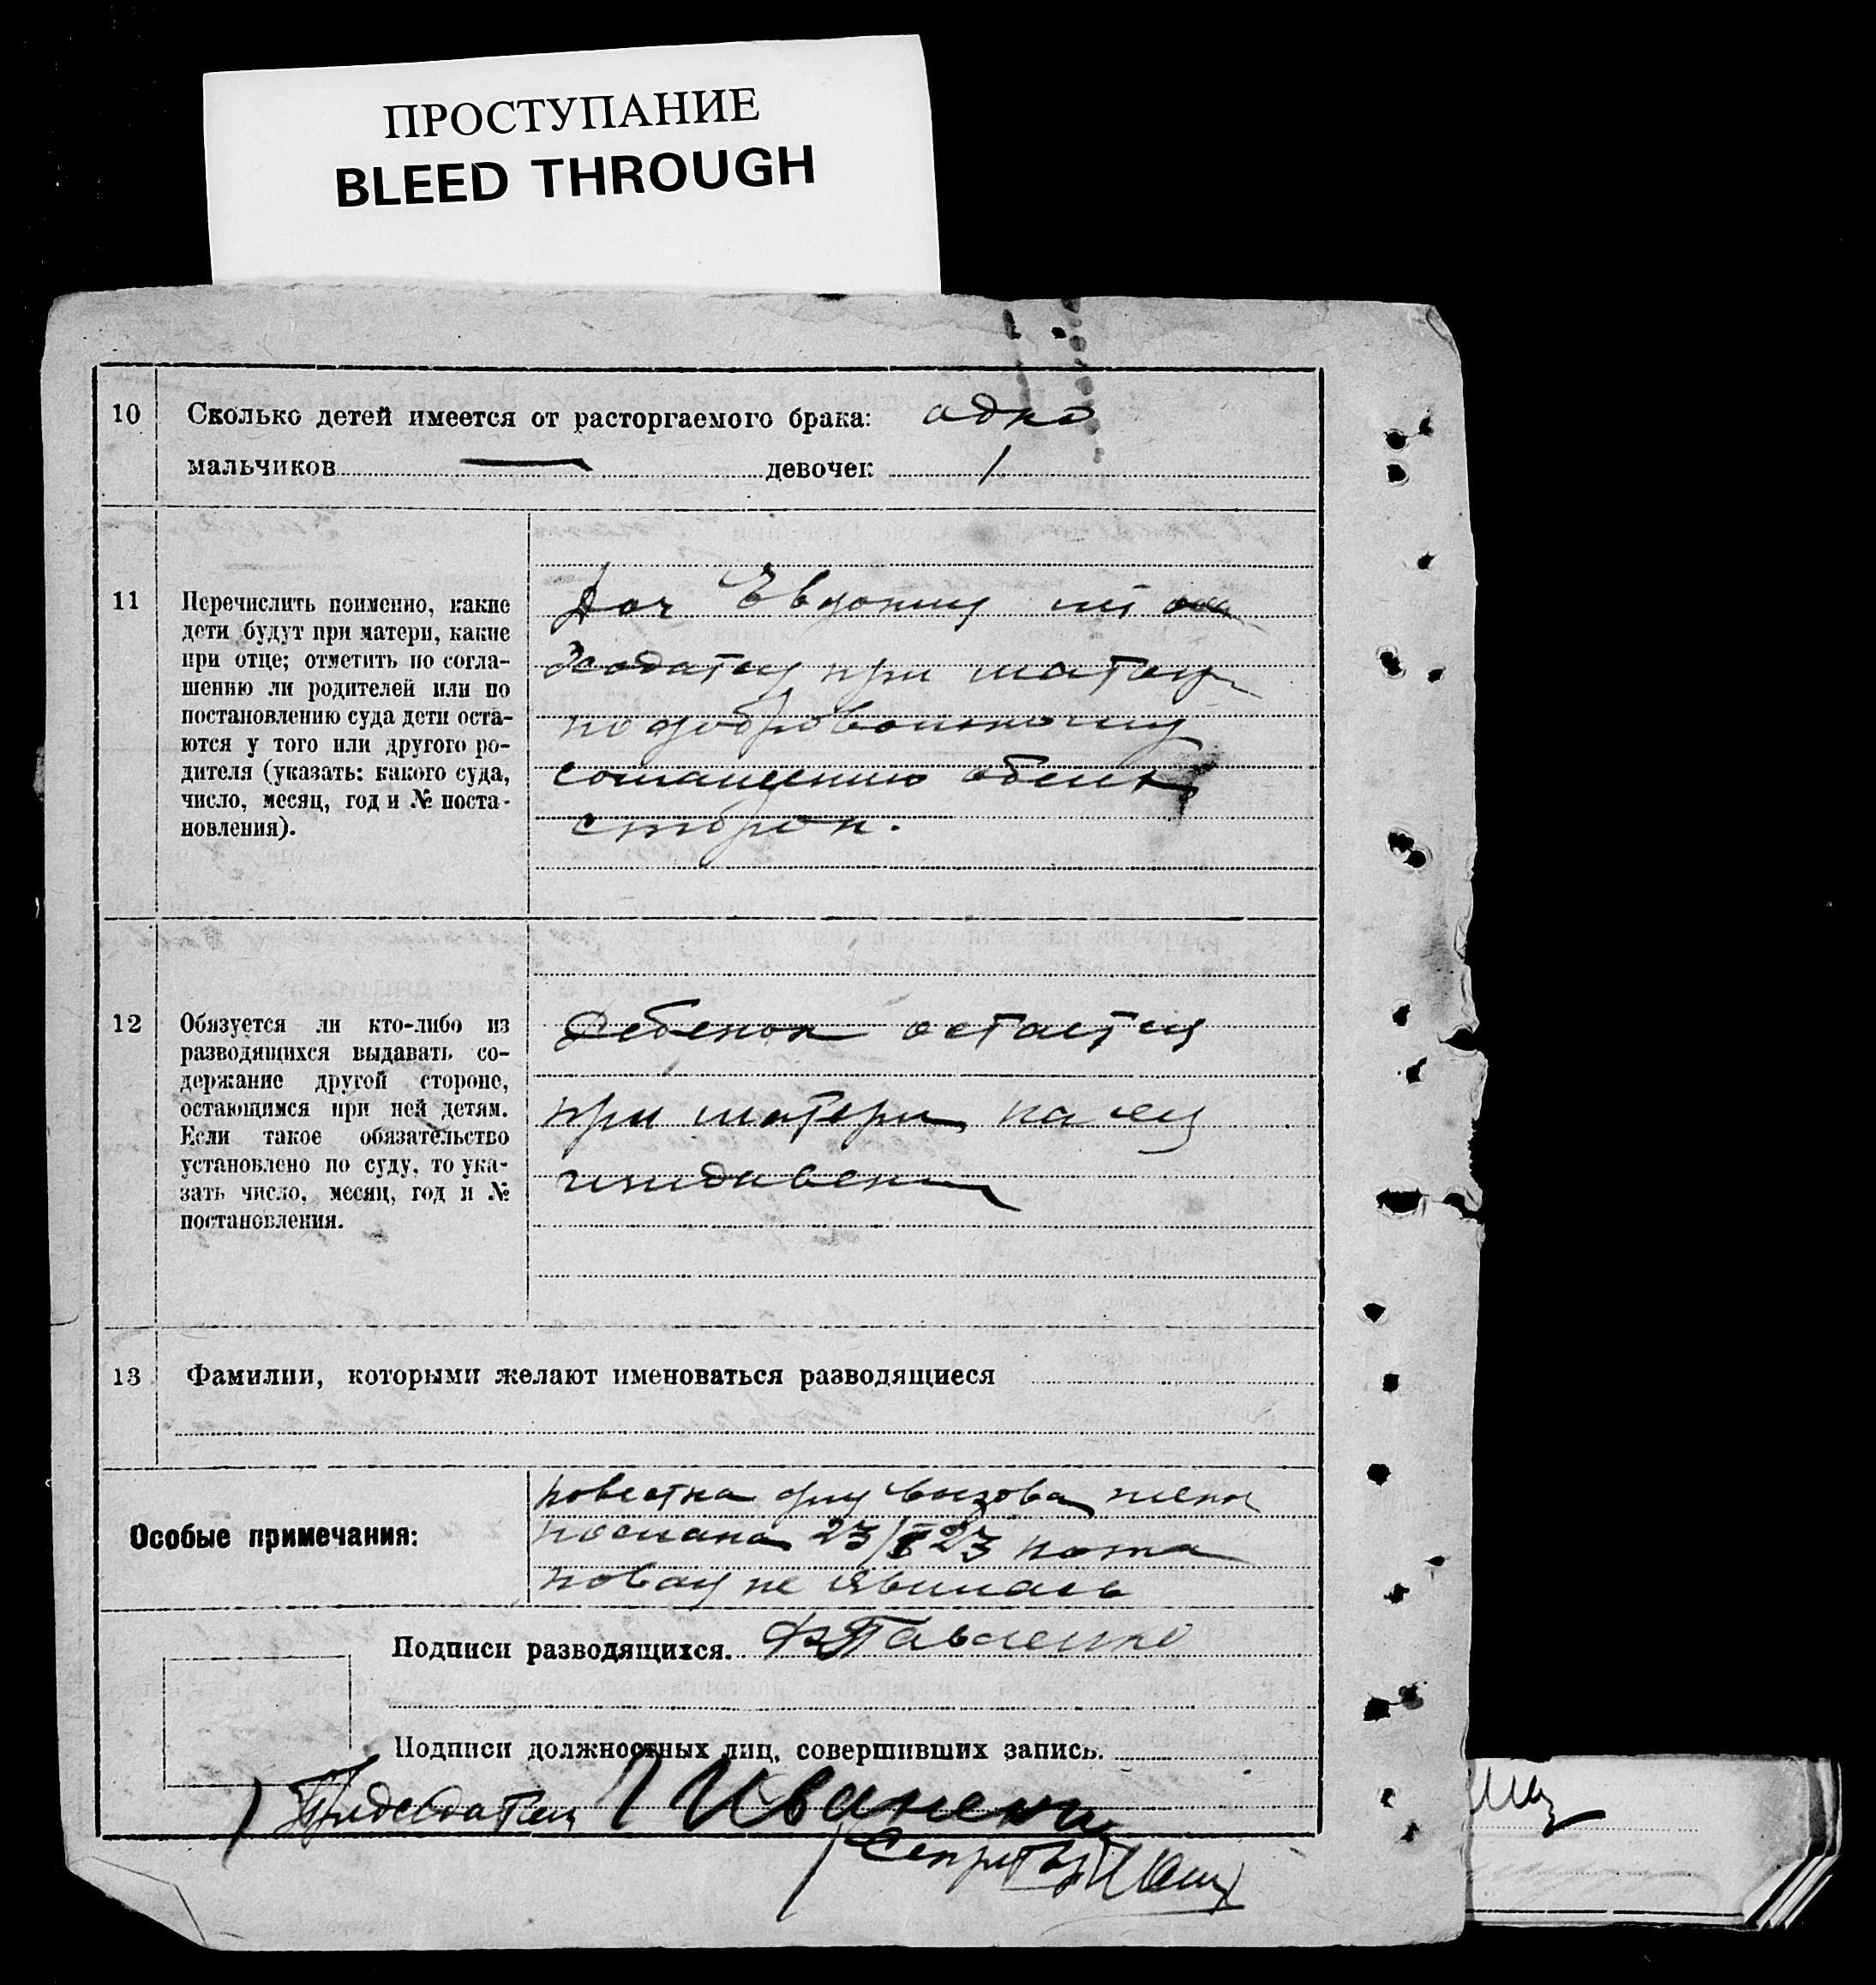 ПРОСТУПАНИЕ
BLEED THROUGH
10 Сколько детей имеется от расторгаемого брака: адно
мальчиков — девочек 1
11 Перечислить поименно, какие
дети будут при матери, какие
при отце; отметить по согла-
шению ли родителей или по
постановлению суда дети оста-
ются у того или другого ро-
дителя (указать: какого суда,
число, месяц, год и № поста-
новления).
Доч Евдокия
находится при
по добровольному
соглашению обеих
сторон.
12 Обязуется ли кто-либо из
разводящихся выдавать со-
держание другой стороне,
остающимся при ней детям.
Если такое обязательство
установлено по суду, то ука-
зать число, месяц, год и №
постановления.
Ребенок остается
при матери, на ея
иждивени
13 Фамилии, которыми желают именоваться разводящиеся
Особые примечания:
повестка для вызова жены
послана 23/I 23
не явилась
Подписи разводящихся. Павленко
Подписи должностных лиц, совершивших запись.
Председатель Иваненко
Секрет